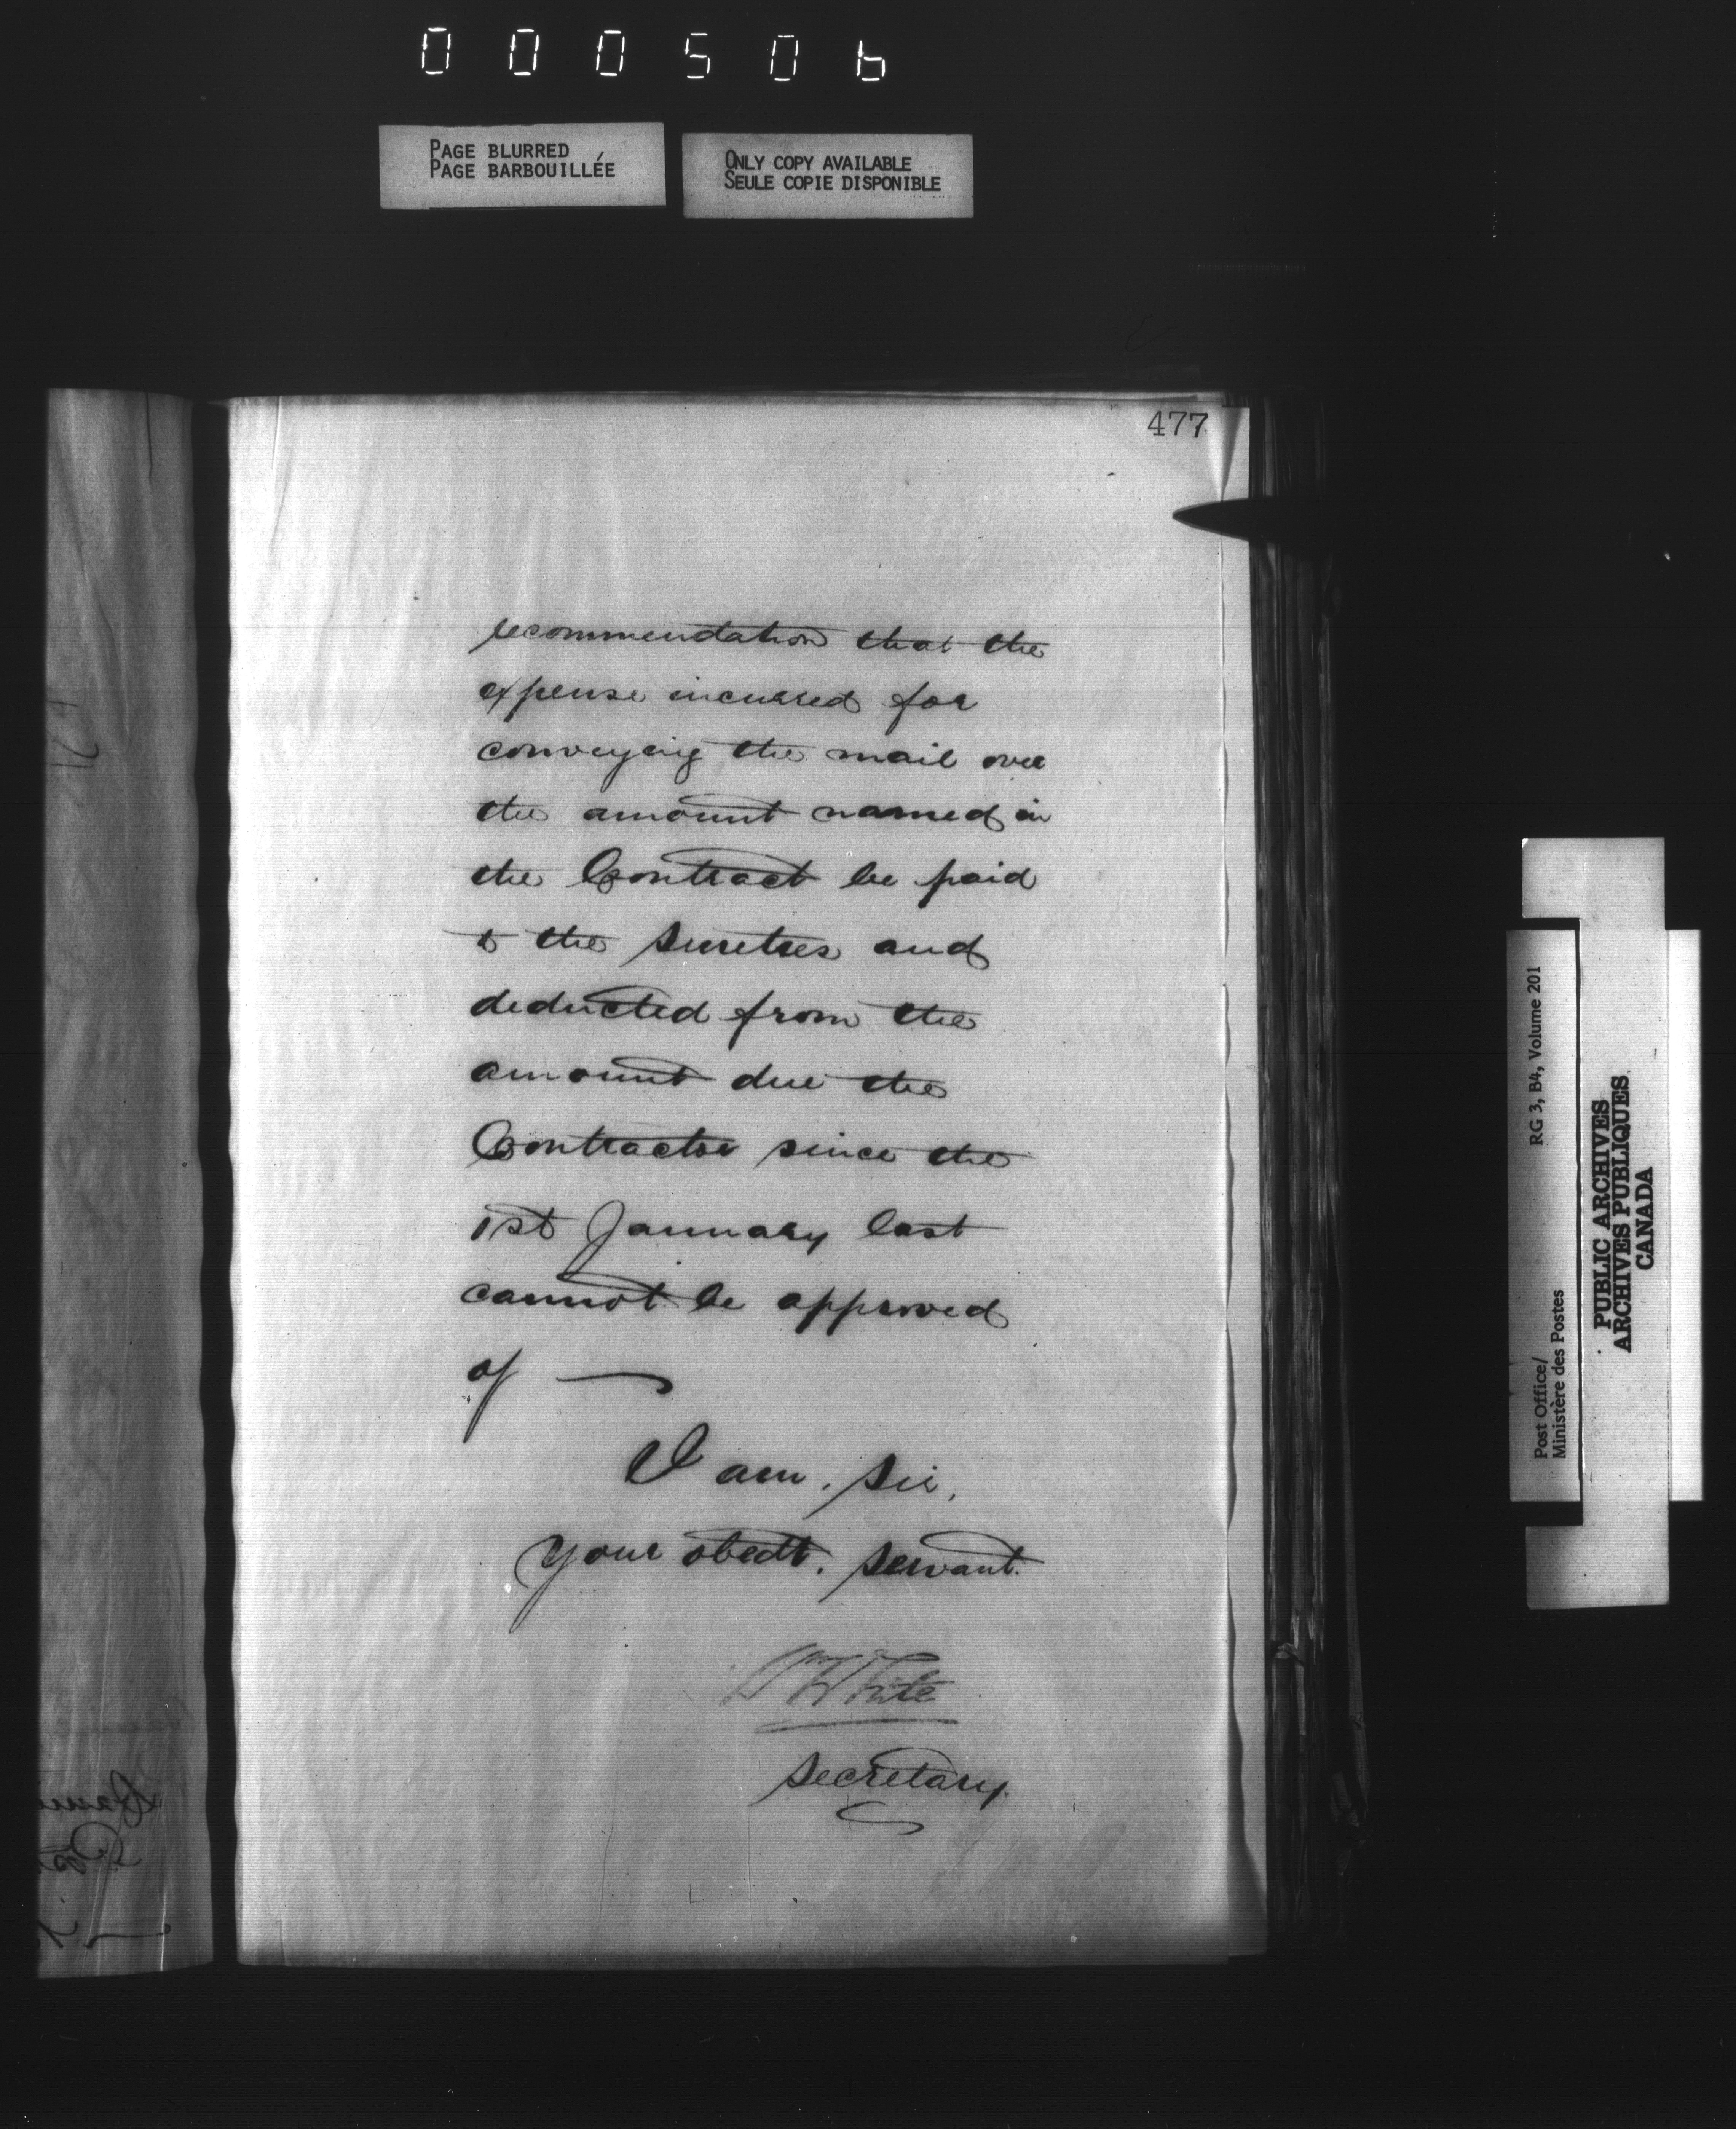 000506
PAGE BLURRED
PAGE BARBOUILLÉE
ONLY COPY AVAILABLE
SEULE COPIE DISPONIBLE
477
recommendation that the
expense incurred for
conveying the mail over
the amount named in
the Contract be paid
to the sureties and
deducted from the
amount due the
Contractor since the
1st January last
cannot be approved
of —
I am, Sir,
Your obedt. servant.
Wm White
Secretary.
Post Office/
Ministère des Postes
RG 3, B4, Volume 201
PUBLIC ARCHIVES
ARCHIVES PUBLIQUES
CANADA